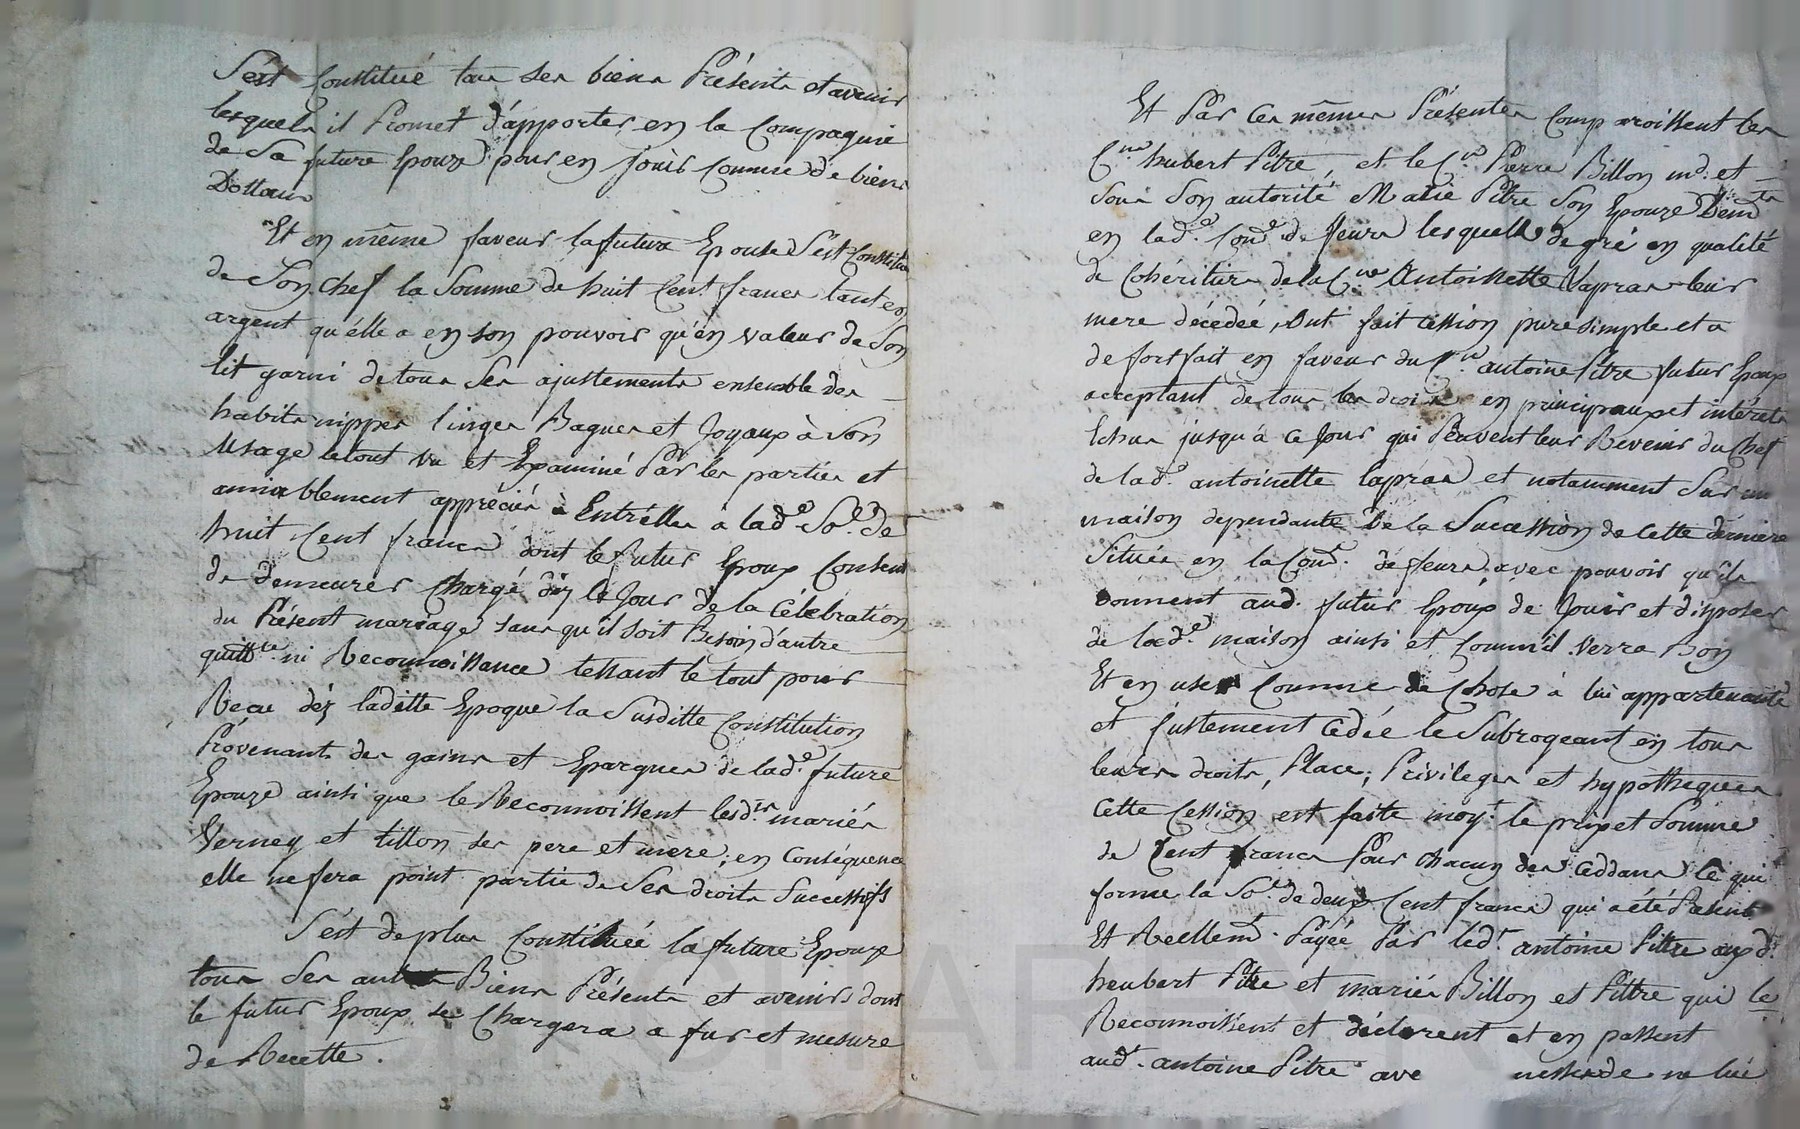 Sest Constitué tous ses biens Présents et avenir
lesquels il Promet d'apporter en la Compagnie
de Sa future Epouze pour en jouir Comme de biens
Dottaux
Et en même faveur la future Epouse S'est Constitué
de Son Chef la Somme de huit Cent francs tant en
argent qu'élle a en son pouvoir qu'én valeur de Son
lit garni de tous Ses ajustements ensemble des
habits nippes linges Bagues et Joyaux à Son
Usage le tout vu et Examiné Par les parties et
amiablement appréciés Entr'élles à lade. So.e de
huit Cent francs dont le futur Epoux Consent
de demeurer Chargé déz le Jour de la Célébration
du Présent mariage sans qu'il soit Besoin d'autre
quittce. ni Reconnoissance tessant le tout pour
Recu déz laditte Epoque la Susditte Constitution
Provenant des gains et Epargnes de lad.e future
Epouze ainsi que le Reconnoissent lesd.ts mariés
Verney et tillon ses pere et mere; en Conséquence
elle ne fera point partie de Ses droits Successifs
S'ést de plus Constituée la future Epouze
tous Ses autres Biens Présents et avenirs dont
le futur Epoux se Chargera a fur et mesure
de Recette.
Et Par Ces mêmes Présentes Comparoissent les
C.ns hubert Pitre, et le C.n Pierre Billon ind. et
Sous Son autorité Marie Pitre Son Epouze Demts
en lad.e Con.e de fleurs lesquels de gré en qualité
de Cohéritiers de la C.ne Antoinette Lapras leur
mere décédée, Ont fait Cession pure simple et a
de forfait en faveur du C.n antoine Pitre futur Epoux
acceptant de tous les droits en principaux et intérets
Echus jusqu'à Ce Jour qui Peuvent leur Revenir du Chef
de lad.e antoinette lapras et notamment Sur un
maison dependante De la Succession de Cette dérniere
Située en la Con.e de fleurs, avec pouvoir qu'ils
donnent aud. futur Epoux de Jouir et disposer
de lad.e maison ainsi et Comm'il verra Bon
Et en user Comme de Chose à lui appartenante
et justement Cedée le Subrogeant en tous
leurs droits, Place, Privileges et hypotheques
Cette Cession est faite moy.t le prix et Somme
de Cent francs Pour chacun des Ceddans Ce qui
forme la So.e de deux Cent francs qui a été
Et Réellem.t Payée Par led.t antoine Pittre auxd.ts
heubert Pitre et mariés Billon et Pittre qui le
Reconnoissent et déclarent et en passent
aud.t antoine Pitre ave ne lui